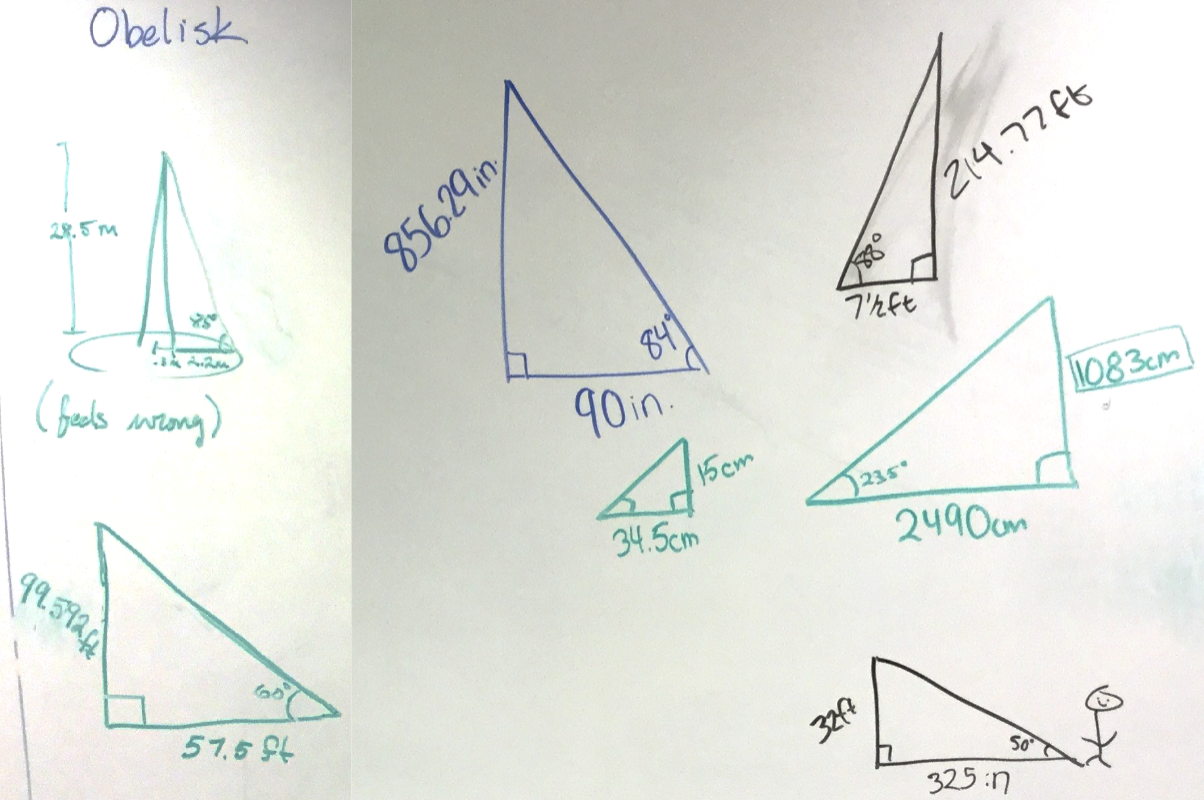 Obelisk
28.5 m
85°
(feels wrong)
99.592 ft
60°
57.5 ft
856.29 in.
84°
90 in.
88°
7 1/2 ft
214.77 ft
15cm
34.5cm
235°
1083cm
2490cm
32ft
50°
325 in